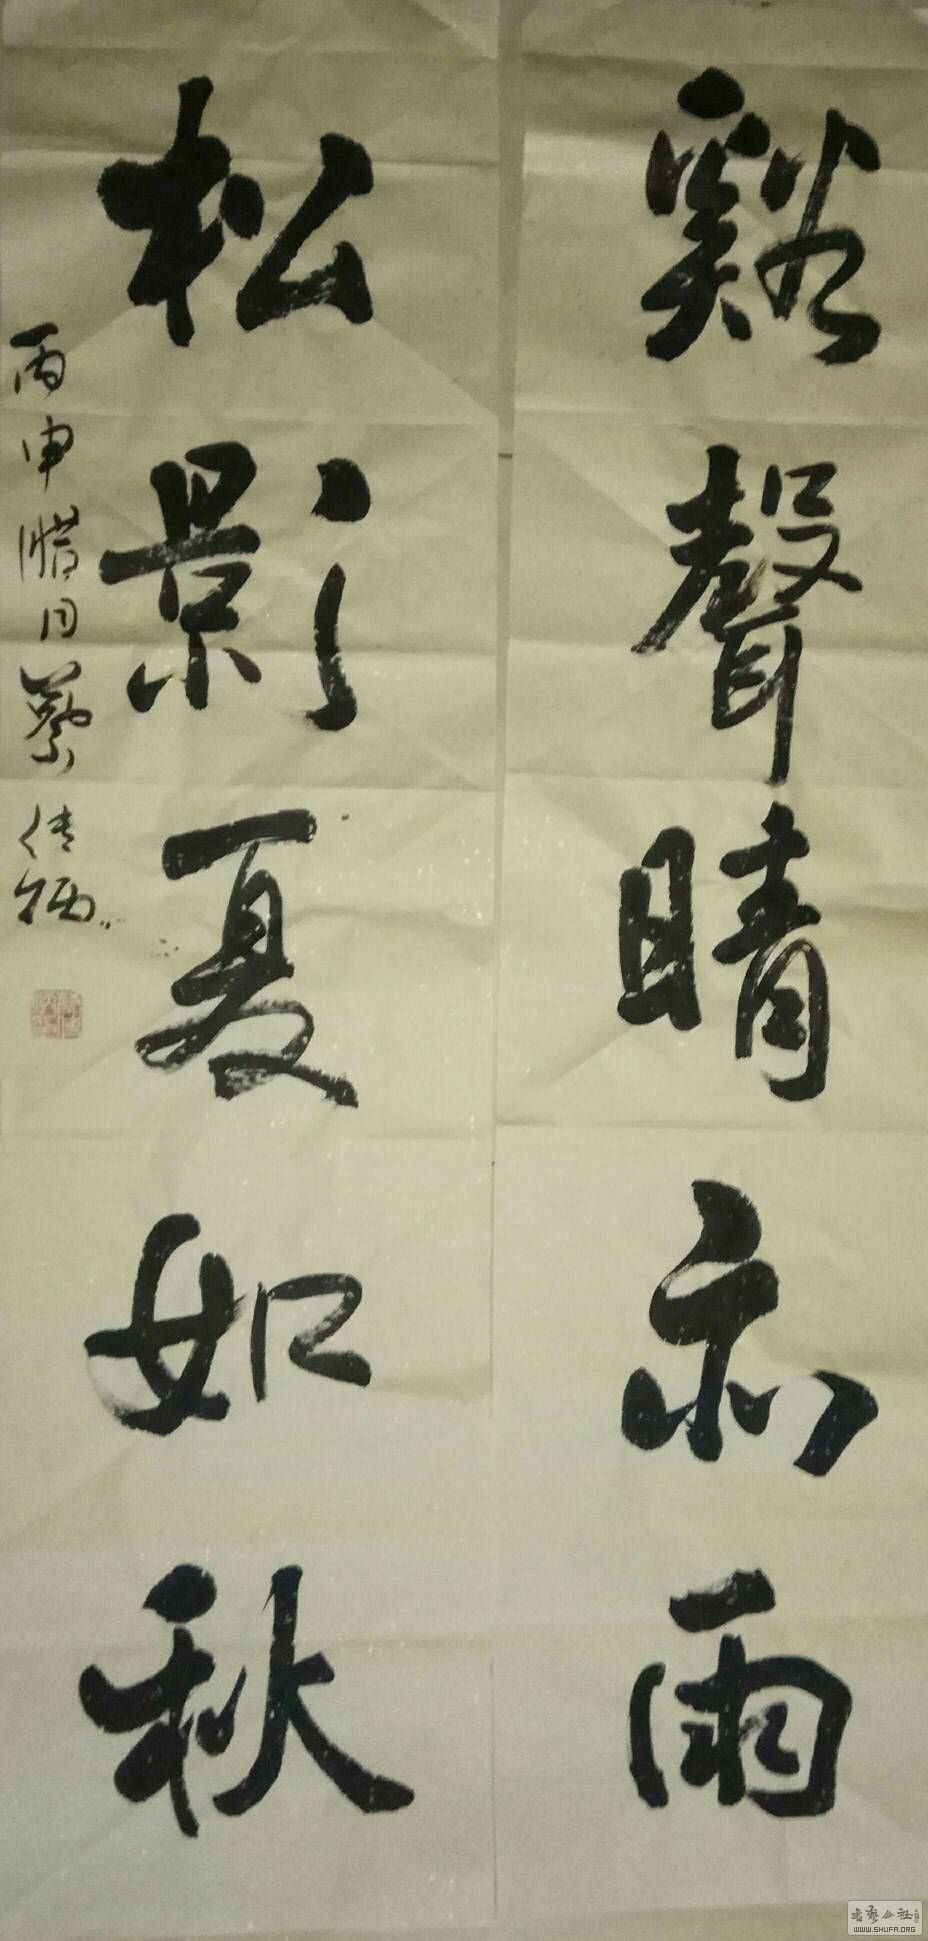 谿聲晴亦雨
松影夏如秋
丙申腊月蔡传炳
書藝公社
WWW.SHUFA.ORG